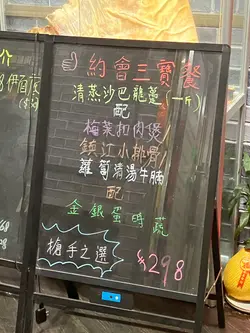 約會三寶餐
清蒸沙巴龍躉(一斤)
配
梅菜扣肉煲/
鎮江小排骨/
蘿蔔清湯牛腩
配
金銀蛋時蔬
槍手之選
$298
伊面